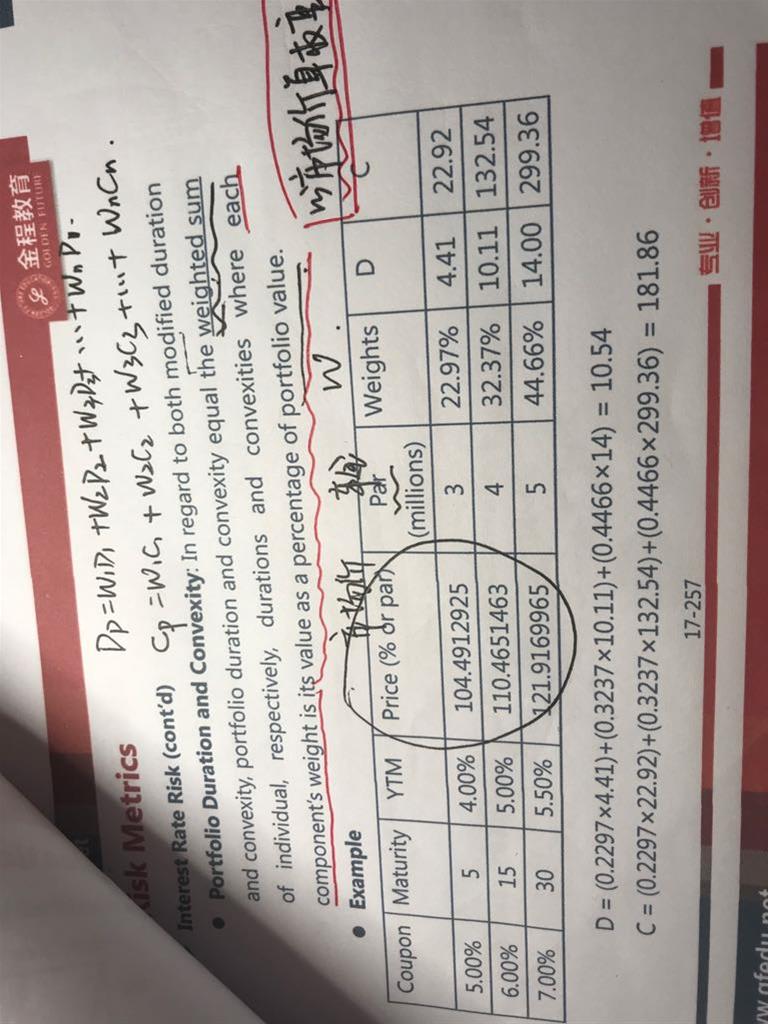 金程教育
GOLDEN FUTURE
Risk Metrics
Dp=W1D1+W2D2+W3D3+...+WnDn.
Cp=W1C1+W2C2+W3C3+...+WnCn.
Interest Rate Risk (cont'd)
● Portfolio Duration and Convexity: In regard to both modified duration
and convexity, portfolio duration and convexity equal the weighted sum
of individual, respectively, durations and convexities where each
component's weight is its value as a percentage of portfolio value.
以市场价算权重
● Example
市场价 W.
Coupon Maturity YTM Price (% or par) Par (millions) Weights D C
5.00% 5 4.00% 104.4912925 3 22.97% 4.41 22.92
6.00% 15 5.00% 110.4651463 4 32.37% 10.11 132.54
7.00% 30 5.50% 121.9169965 5 44.66% 14.00 299.36
D = (0.2297×4.41)+(0.3237×10.11)+(0.4466×14) = 10.54
C = (0.2297×22.92)+(0.3237×132.54)+(0.4466×299.36) = 181.86
17-257
专业·创新·增值